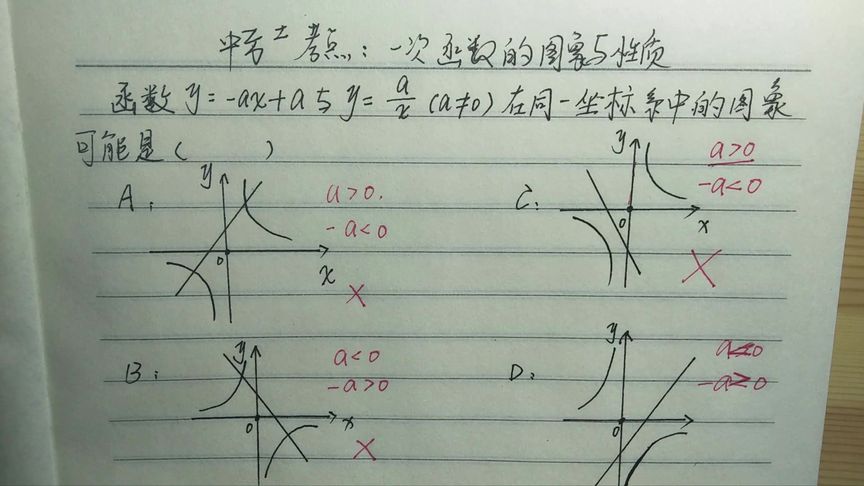 中考士考点：一次函数的图象与性质
函数 y=-ax+a 与 y=a/x (a≠0) 在同一坐标系中的图象
可能是（ ）
A：
y
x
0
a>0.
-a<0
×
C：
y
x
0
a>0
-a<0
×
B：
y
x
0
a<0
-a>0
×
D：
y
0
a<0
-a>0